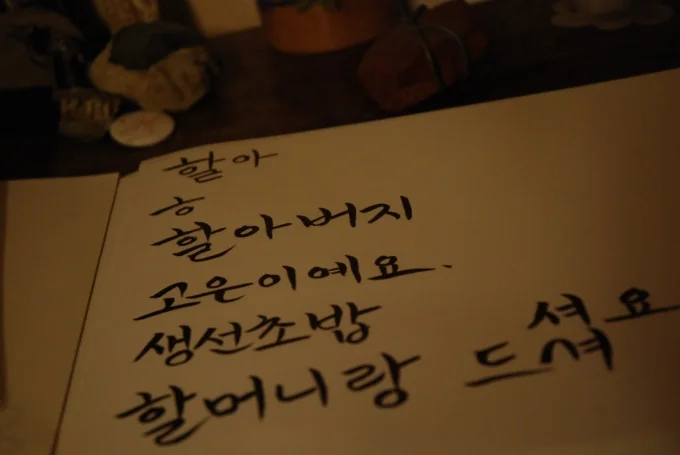 할아
ㅎ
할아버지
고은이예요.
생선초밥
할머니랑 드셔
셔요